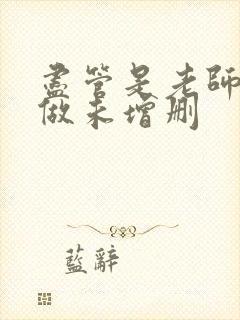 盡管是老師
做未增刪
藍辭